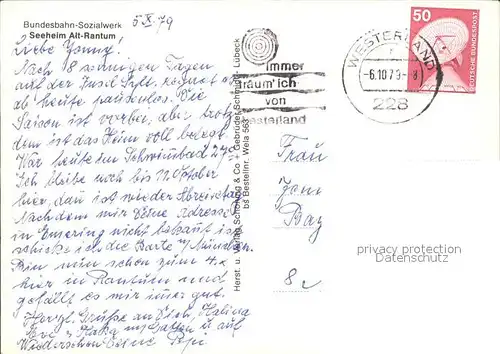 Bundesbahn-Sozialwerk
Seeheim Alt-Rantum
5.X.79
Liebe Yonny!
Nach 18 sonnigen Tagen
auf der Insel Sylt, regnet es
ab heute pausenlos. Die
Saison ist vorbei, aber trotz-
dem ist das Heim voll belegt.
War heute im Schwimbad 27°
Ich bleibe noch bis 11. Oktober
hier, dan ist wieder Abreisetag
Nachdem mir Deine Adresse
in Emering nicht bekant ist
schicke ich die Karte n/ München.
Bin nun schon zum 4. x
hier in Rantum und
gefällt es mir immer gut.
Herzl. Grüße an Dich, Halina
u. auf
Wiedersehen Deine Pepi
Herst. u. Verlag Schöning & Co. + Gebrüder Schmidt, Lübeck
Bestellnr. Wela 563
immer
träum' ich
von
Westerland
WESTERLAND
-6.10.79-8
228
50
DEUTSCHE BUNDESPOST
Frau
Bay
8
privacy protection
Datenschutz